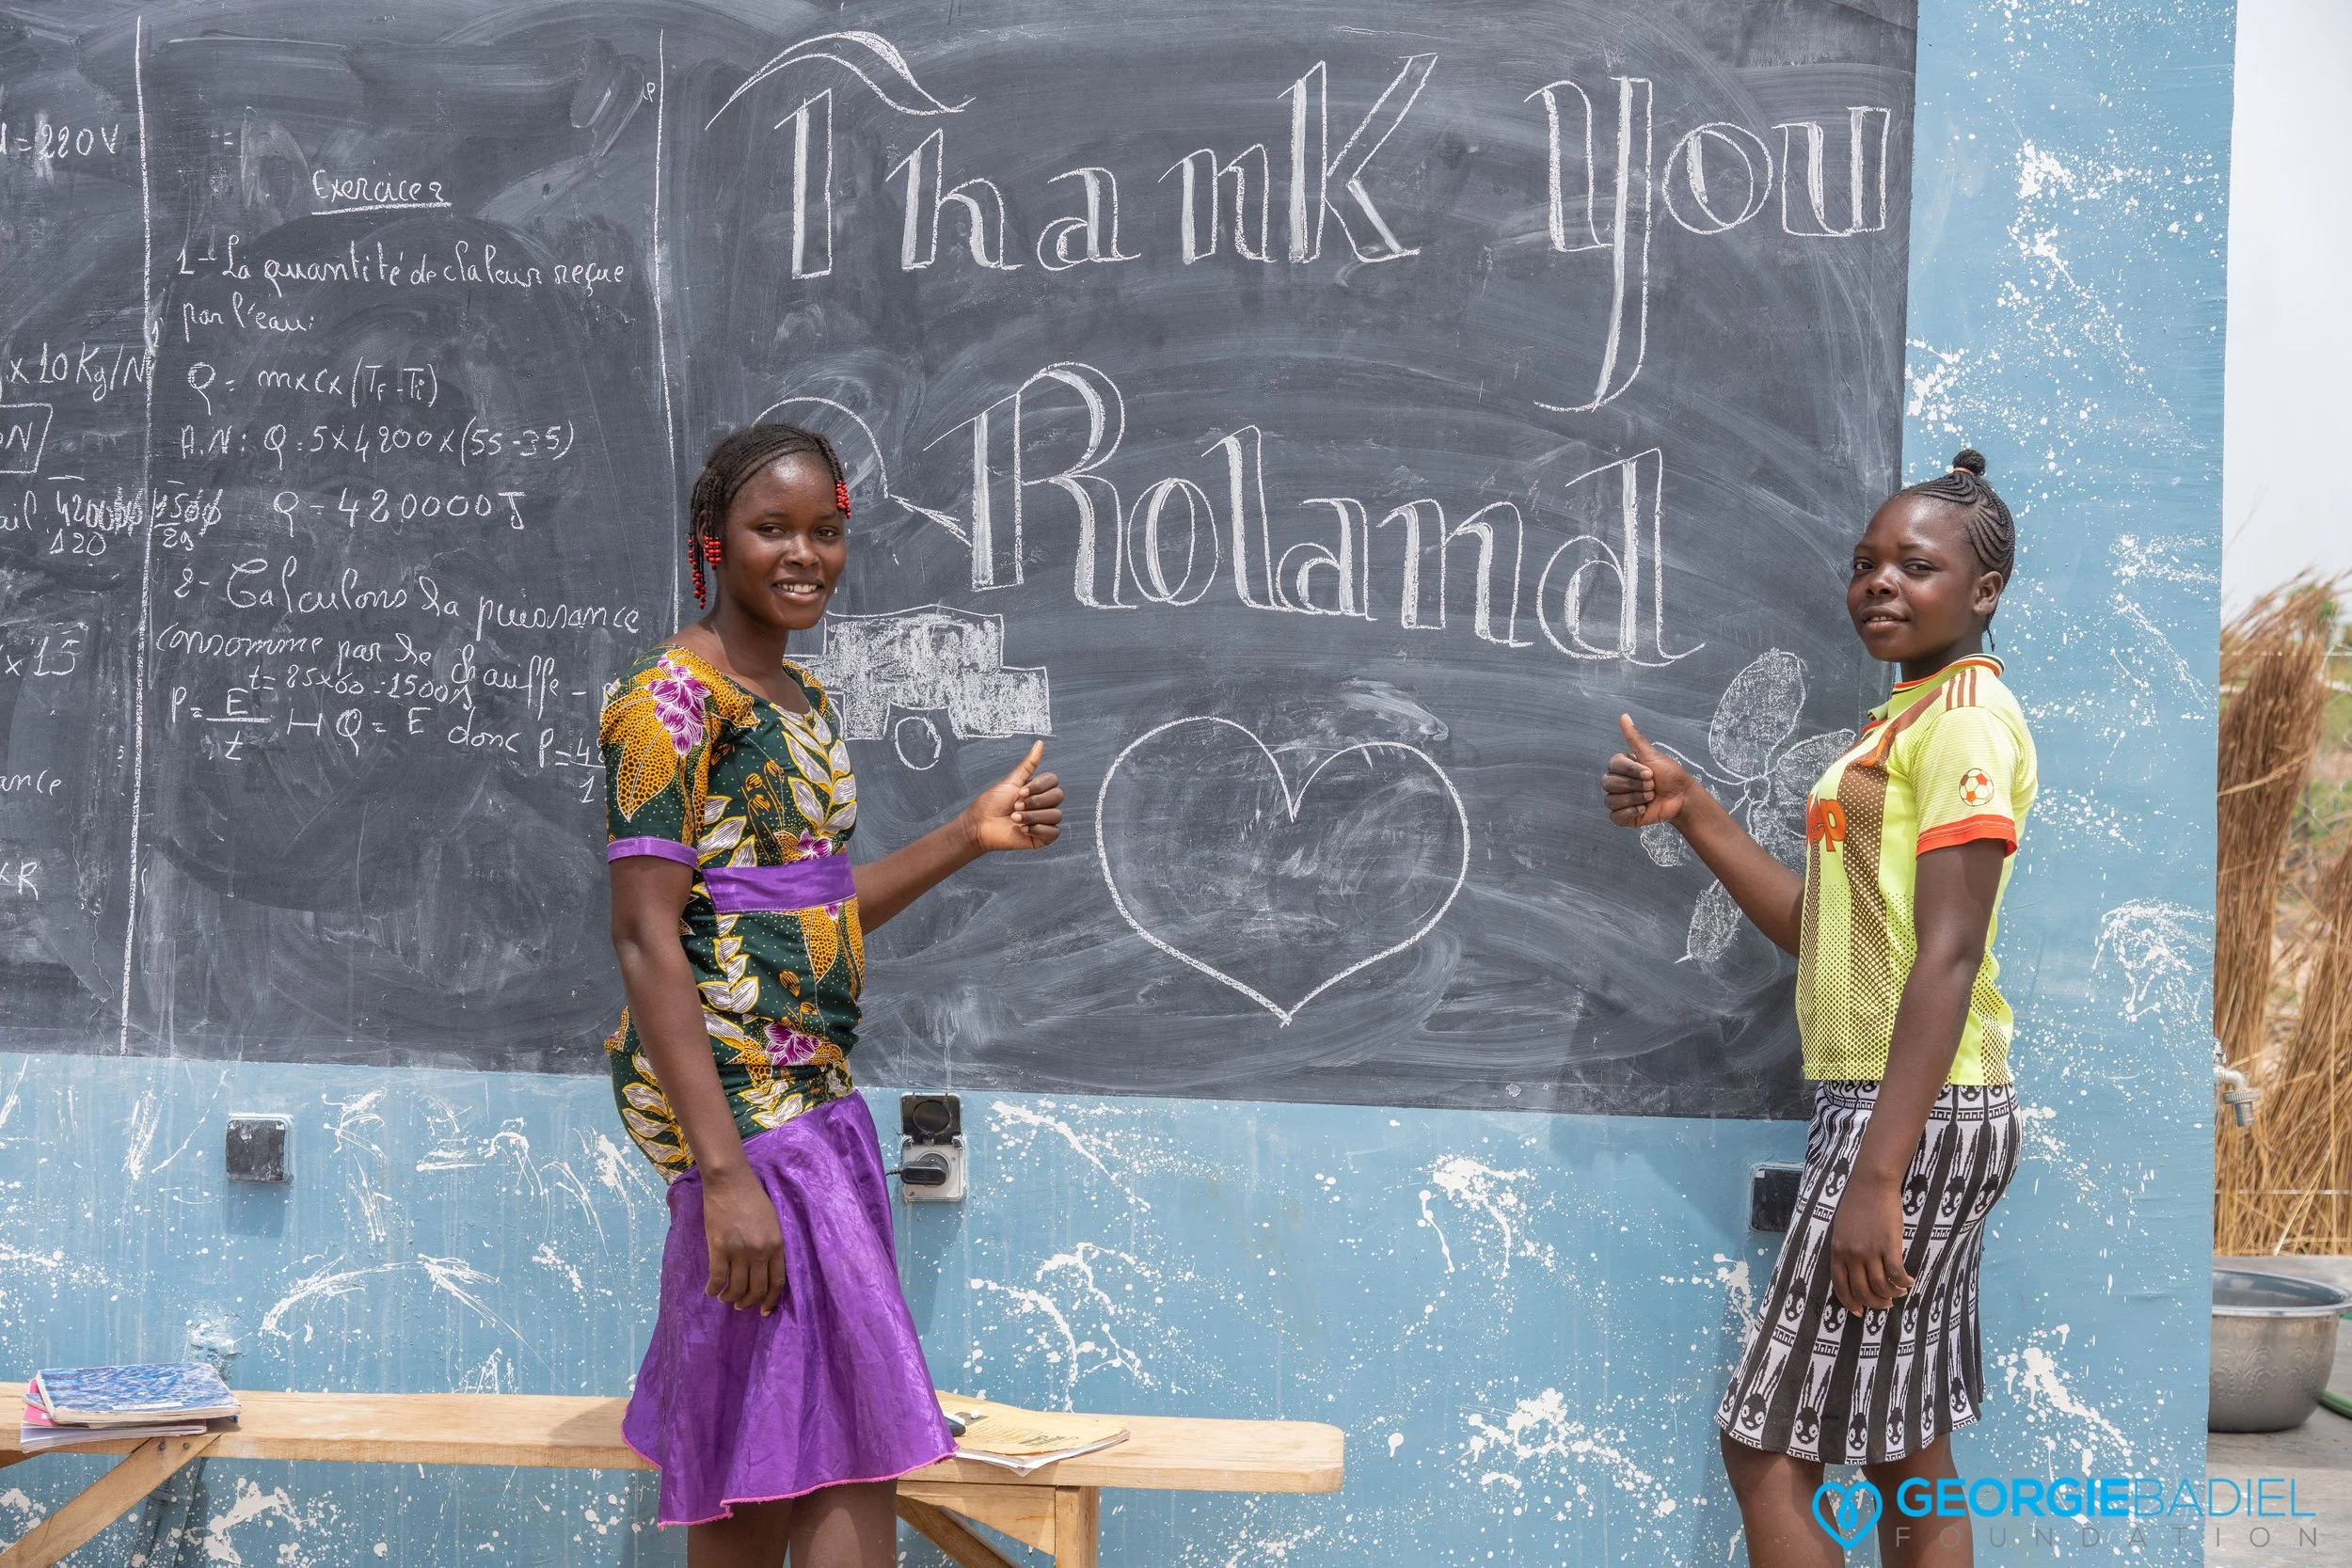 =220V
x 10 Kg/N
N
120
x 15
ance
xR
=
Exercice 2
1- La quantité de chaleur reçue
par l'eau:
Q = mxcx (TF - Ti)
A.N: Q = 5x4200x(55-35)
Q = 420000J
2- Calculons la puissance
consomme par le chauffe-
t= 25x60 = 1500s
P = E/t H Q = E donc P =
Thank You
Roland
GEORGIEBADIEL
FOUNDATION